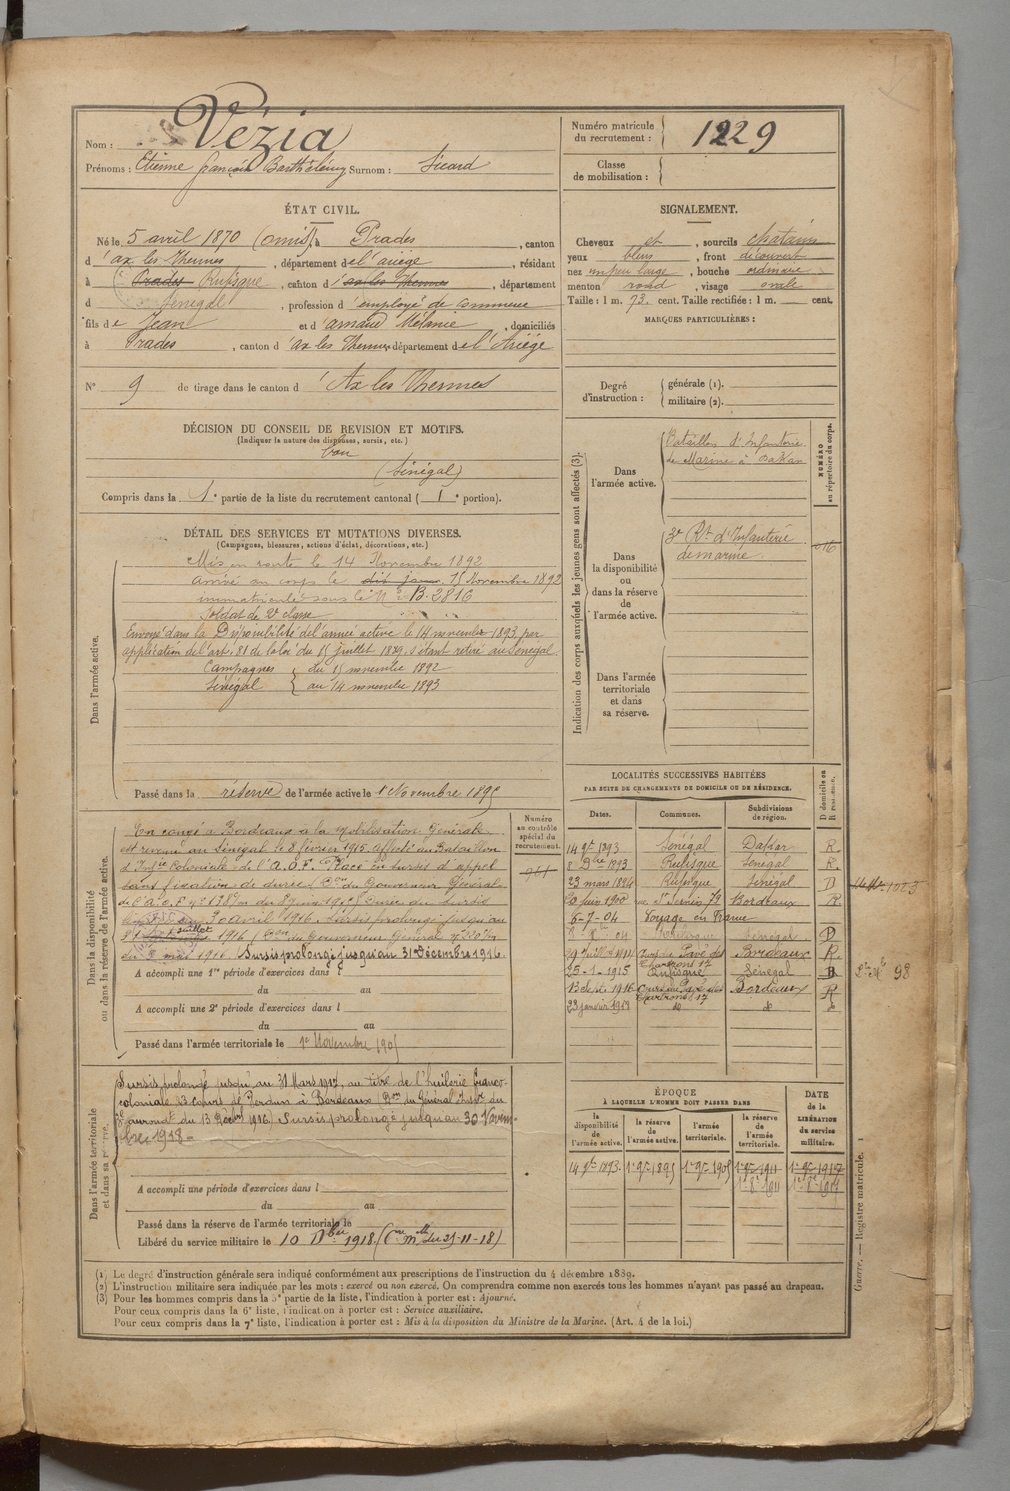 Nom : Vézia
Prénoms : Etienne françois Barthélémy Surnom : Sicard
Numéro matricule du recrutement : 1229
Classe de mobilisation :
ÉTAT CIVIL.
Né le 5 avril 1870 (omis), à Prades, canton
d'ax les Thermes, département de l'ariège, résidant
à Prades Rufisque, canton d'ax les Thermes, département
d Sénégal, profession d'employé de commerce
fils de Jean et d'arnaud Mélanie, domiciliés
à Prades, canton d'ax les Thermes département de l'Ariége
N° 9 de tirage dans le canton d'Ax les Thermes
SIGNALEMENT.
Cheveux et, sourcils chatains
yeux bleus, front découvert
nez un peu large, bouche ordinaire
menton rond, visage ovale
Taille : 1 m. 73 cent. Taille rectifiée : 1 m. cent.
MARQUES PARTICULIÈRES :
Degré d'instruction : générale (1).
militaire (2).
DÉCISION DU CONSEIL DE REVISION ET MOTIFS.
(Indiquer la nature des dispenses, sursis, etc.)
bon
(Sénégal)
Compris dans la 1e partie de la liste du recrutement cantonal ( 1e portion).
DÉTAIL DES SERVICES ET MUTATIONS DIVERSES.
(Campagnes, blessures, actions d'éclat, décorations, etc.)
Dans l'armée active.
Mis en route le 14 Novembre 1892
arrivé au corps le dit jour. 15 Novembre 1892
immatriculé sous le N° B. 2816
Soldat de 2e classe " "
Envoyé dans la Disponibilité de l'armée active le 14 novembre 1893 par
application de l'art. 81 de la loi du 15 juillet 1889, s'étant retiré au Sénégal.
Campagnes du 15 novembre 1892
Sénégal au 14 novembre 1893
Passé dans la réserve de l'armée active le 1er Novembre 1895
Indication des corps auxquels les jeunes gens sont affectés (3).
NUMÉRO au répertoire du corps.
Dans l'armée active.
Bataillon d'Infanterie
de Marine à Dakar
Dans la disponibilité ou dans la réserve de l'armée active.
3e Rt d'Infanterie
de marine
Dans l'armée territoriale et dans sa réserve.
LOCALITÉS SUCCESSIVES HABITÉES
PAR SUITE DE CHANGEMENTS DE DOMICILE OU DE RÉSIDENCE.
Dates. Communes. Subdivisions de région. D domicile ou R résidence.
14 9bre 1893 Sénégal Dakar R
8 Dbre 1893 Rufisque Sénégal R
23 mars 1894 Rufisque Sénégal D
20 juin 1900 rue St Sernin 79 Bordeaux R
6-7-04 Voyage en France
04 Rufisque Sénégal D
1914 Cours du Pavé des Chartrons 17 Bordeaux R
25-1-1915 Rufisque Sénégal R
13 Sept. 1916 Cours du Pavé des Chartrons 17 Bordeaux R
23 janvier 1919 do do do
98
Dans la disponibilité ou dans la réserve de l'armée active.
Numéro au contrôle spécial du recrutement.
En congé à Bordeaux à la mobilisation Générale
est revenu au Sénégal le 8 février 1915. affecté au Bataillon
d'Infie Coloniale de l'A.O.F. Placé en sursis d'appel
sans fixation de durée Don du Gouverneur Général
de l'A.O.F. Durée du sursis
30 avril 1916. Sursis prolongé jusqu'au
31 juillet 1916 (Don du Gouverneur Général
du 2 mai 1916 Sursis prolongé jusqu'au 31 Décembre 1916.
A accompli une 1re période d'exercices dans l
du au
A accompli une 2e période d'exercices dans l
du au
Passé dans l'armée territoriale le 1er Novembre 1905
Dans l'armée territoriale et dans sa réserve.
Sursis prolongé jusqu'au 31 Mars 1917, au titre de l'huilerie franco-
coloniale 23 Cours de Verdun à Bordeaux (Don du Général
du 13 Décbre 1916) Sursis prolongé jusqu'au 30 Novem-
bre 1918-
A accompli une période d'exercices dans l
du au
Passé dans la réserve de l'armée territoriale le
Libéré du service militaire le 10 Dbre 1918. (Cire mlle du 25-11-18)
ÉPOQUE
À LAQUELLE L'HOMME DOIT PASSER DANS
la disponibilité de l'armée active. la réserve de l'armée active. l'armée territoriale. la réserve de l'armée territoriale.
DATE de la LIBÉRATION du service militaire.
14 9bre 1893 1er 9bre 1895 1er 9bre 1905 1er 9bre 1911 1er 9bre 1917
Guerre. — Registre matricule. 1
(1) Le degré d'instruction générale sera indiqué conformément aux prescriptions de l'instruction du 4 décembre 1889.
(2) L'instruction militaire sera indiquée par les mots : exercé ou non exercé. On comprendra comme non exercés tous les hommes n'ayant pas passé au drapeau.
(3) Pour les hommes compris dans la 5e partie de la liste, l'indication à porter est : Ajourné.
Pour ceux compris dans la 6e liste, l'indication à porter est : Service auxiliaire.
Pour ceux compris dans la 7e liste, l'indication à porter est : Mis à la disposition du Ministre de la Marine. (Art. 4 de la loi.)